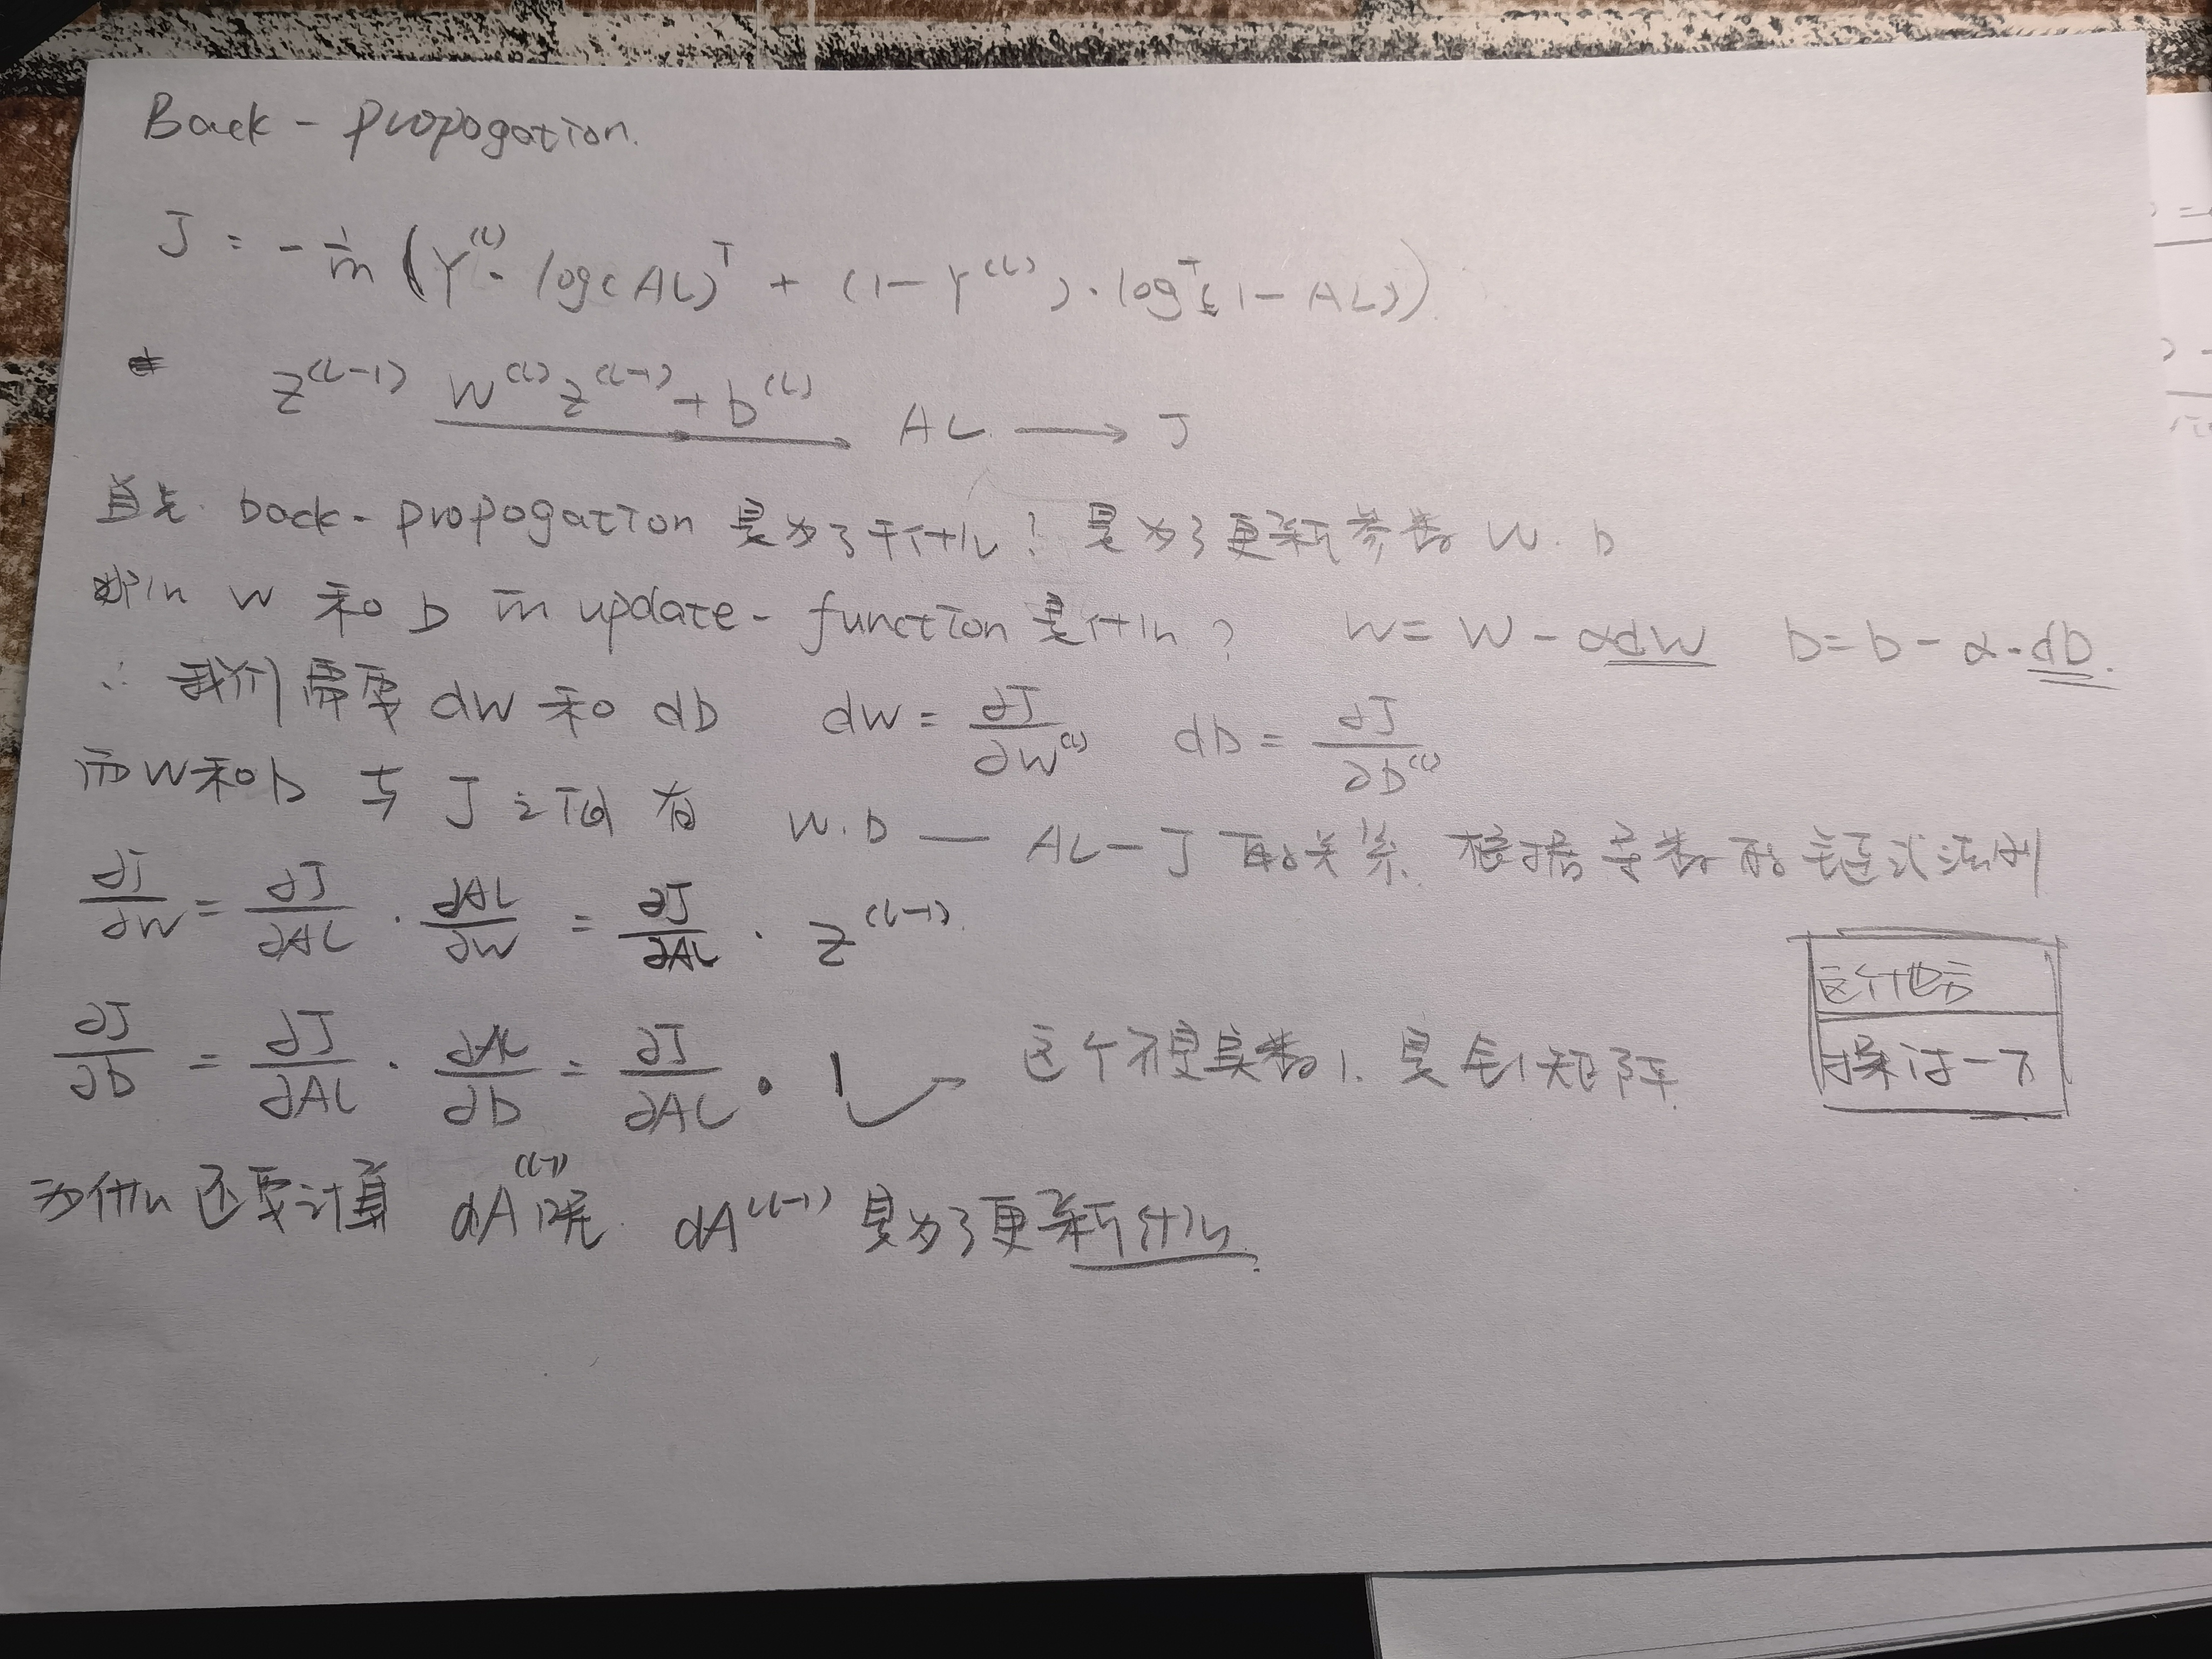 Back - propogation.
J = - 1/m ( Y^(L) · log(AL)^T + (1 - Y^(L)) · log^T(1 - AL) ).
z^(L-1) W^(L) z^(L-1) + b^(L) → AL → J
首先. back - propogation 是为了干什么? 是为了更新参数 W. b
那么 W 和 b 的 update - function 是什么? W = W - αdW b = b - α·db.
∴ 我们需要 dW 和 db dW = ∂J/∂W^(L) db = ∂J/∂b^(L)
而W和b 与 J 之间有 W.b — AL — J 的关系. 根据导数的链式法则
∂J/∂W = ∂J/∂AL · ∂AL/∂W = ∂J/∂AL · z^(L-1).
∂J/∂b = ∂J/∂AL · ∂AL/∂b = ∂J/∂AL · 1 → 这个不是实数1. 是全1矩阵.
这个地方
探讨一下
为什么还要计算 dA^(L-1)呢. dA^(L-1) 是为了更新什么.